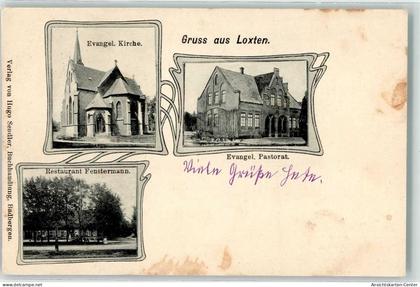 Evangel. Kirche.
Gruss aus Loxten.
Evangel. Pastorat.
Restaurant Fenstermann.
Viele Grüße
Verlag von Hugo Sendler, Buchhandlung, Badbergen.
www.ansichtskarten-center.de
Ansichtskarten-Center.de